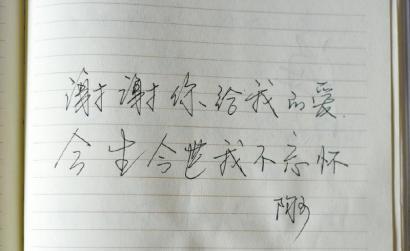 谢谢你、给我的爱.
今生今世我不忘怀